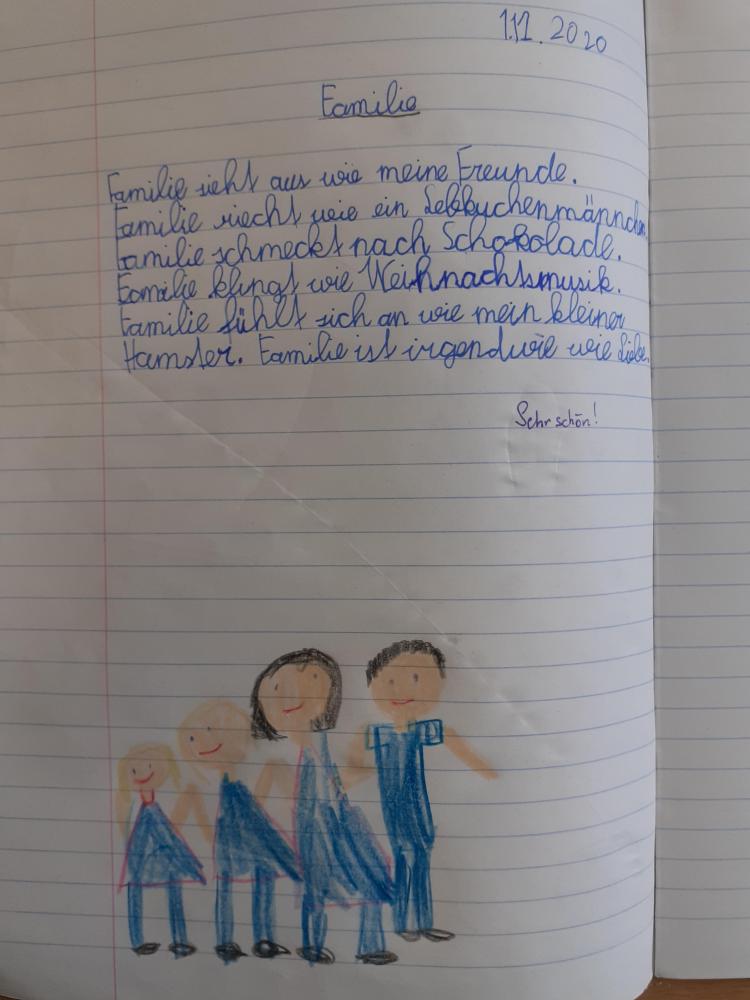 1.12.2020
Familie
Familie sieht aus wie meine Freunde.
Familie riecht wie ein Lebkuchenmännchen.
Familie schmeckt nach Schokolade.
Familie klingt wie Weihnachtsmusik.
Familie fühlt sich an wie mein kleiner
Hamster. Familie ist irgendwie wie Liebe.
Sehr schön!